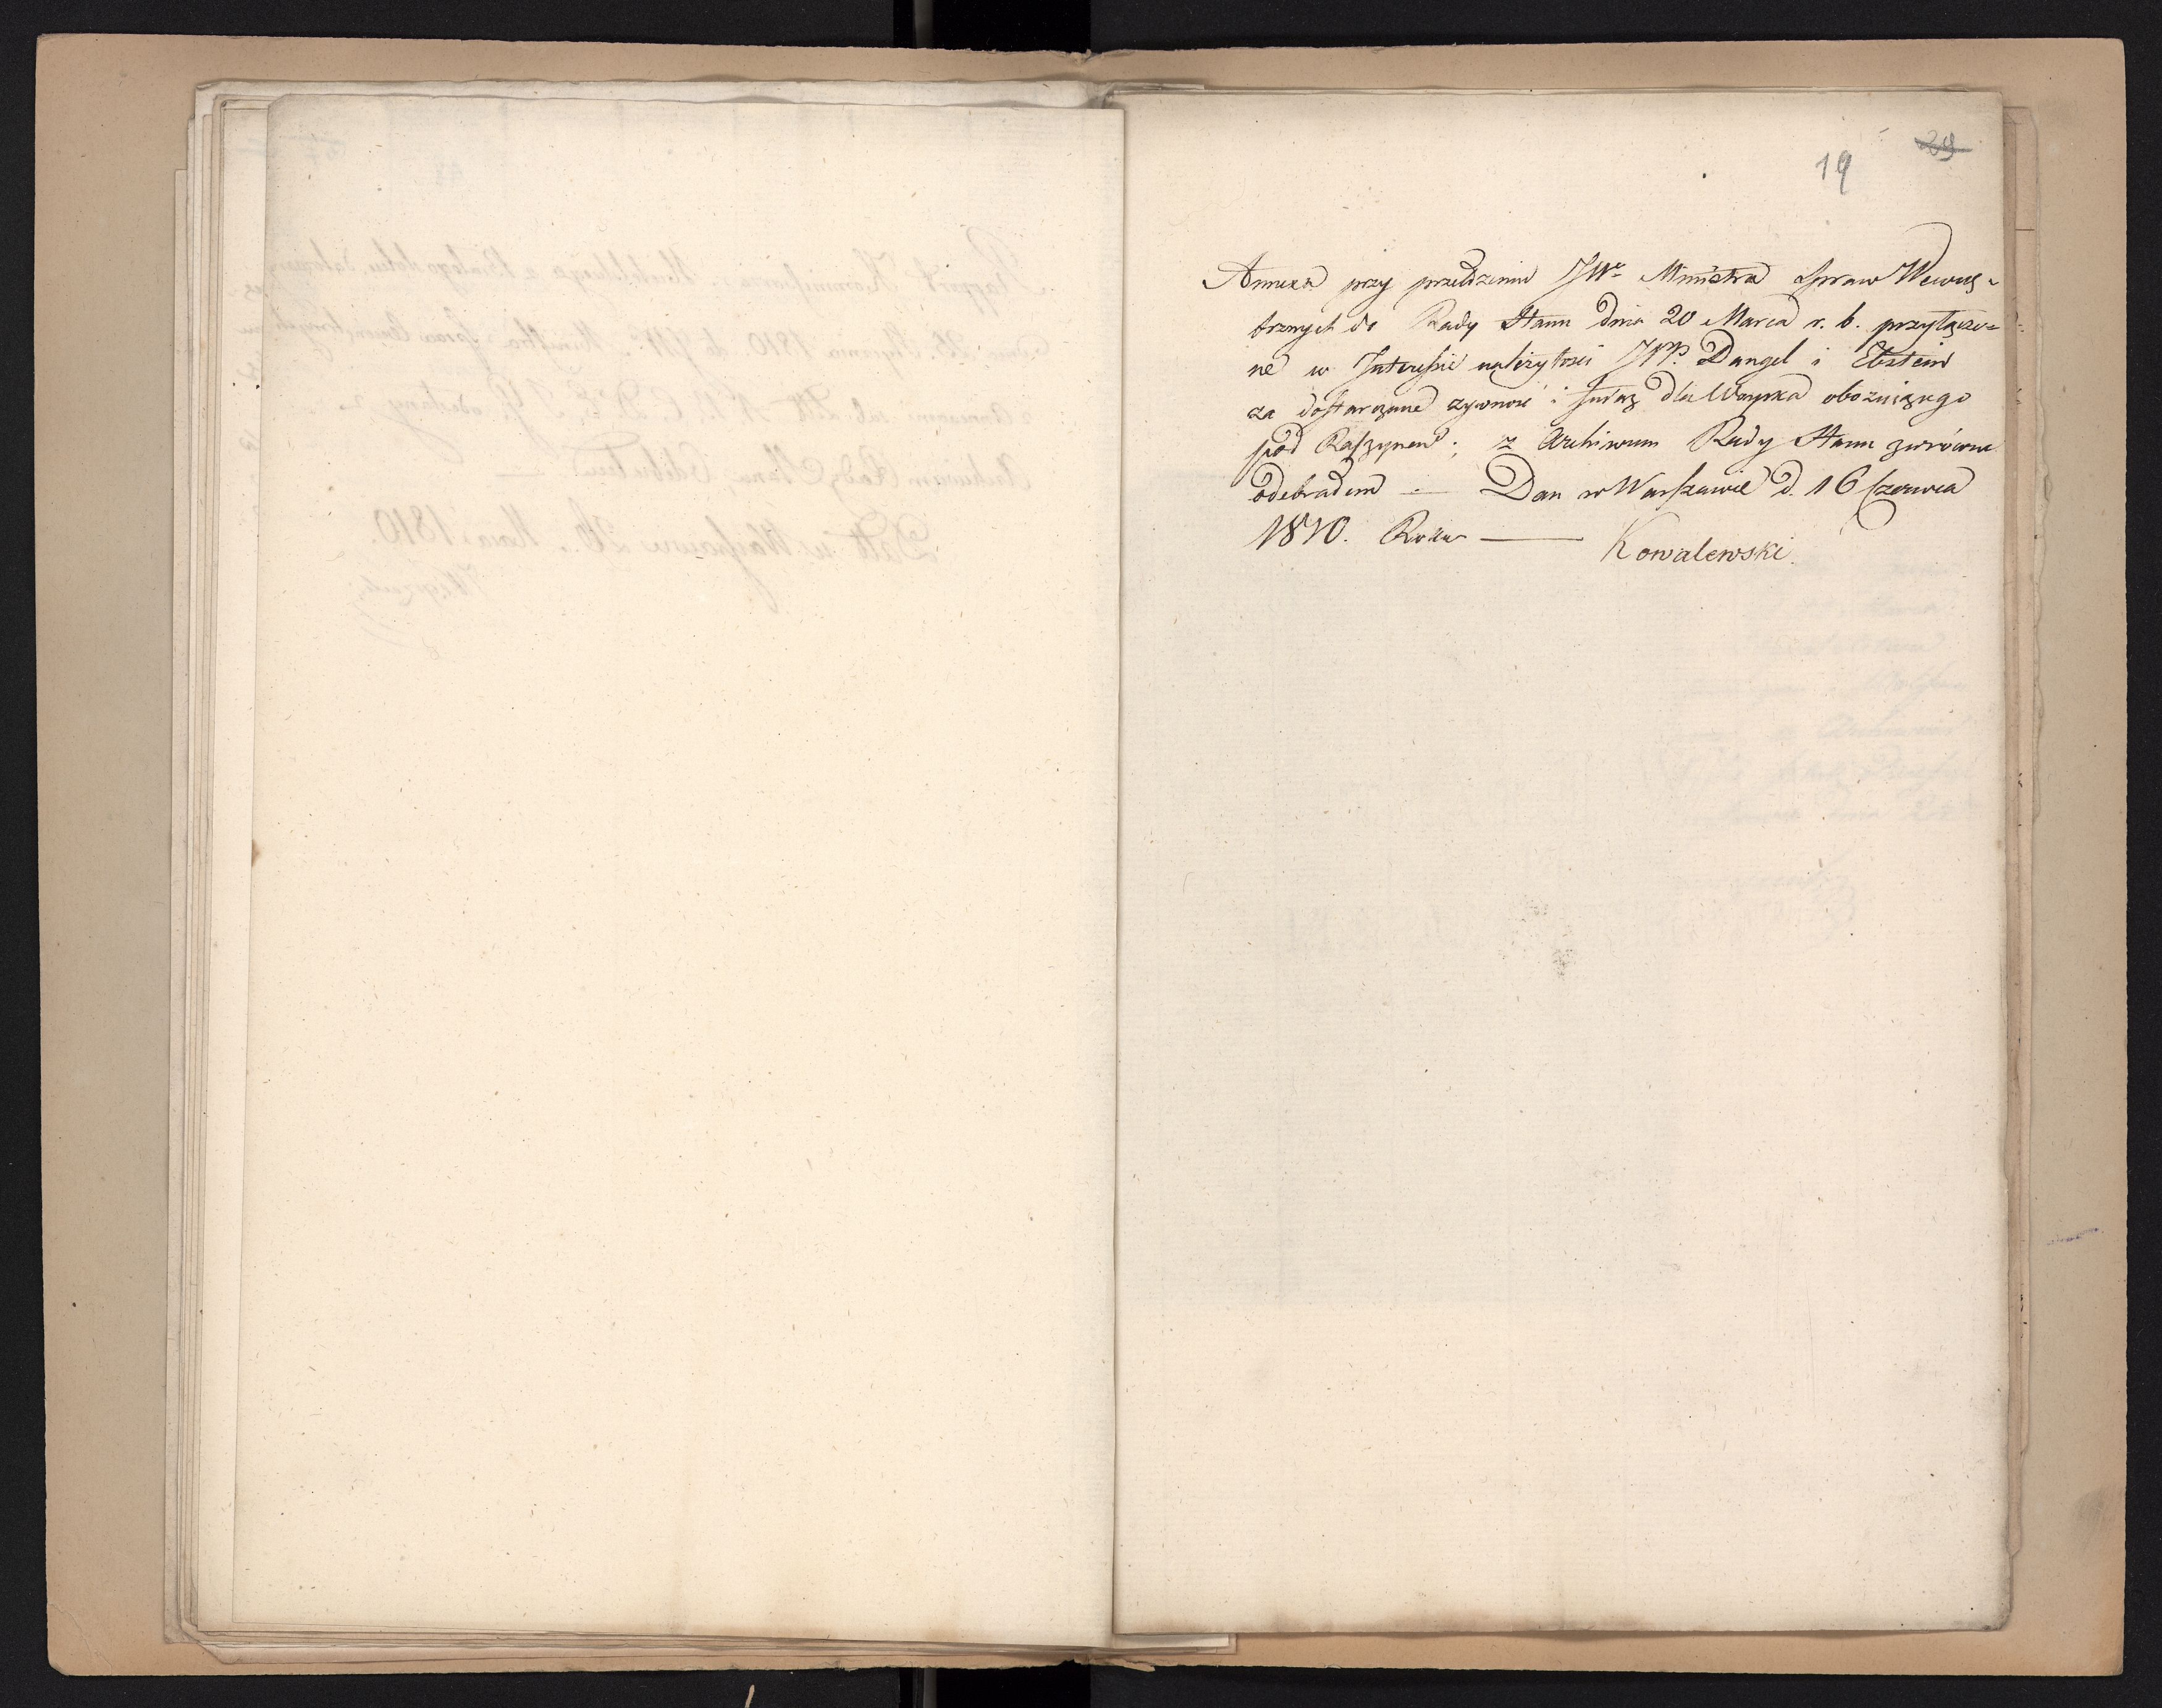 19 29
Annexa przy przełożeniu JWo Ministra Spraw Wewnę-
trznych do Rady Stanu dnia 20 Marca r. b. przyłączo-
ne w Interessie należytosci JPP. Dangel i Ebstein
za dostarczane zywnosć i furaż dla Woyska obozuiącego
pod Raszynem; z Archiwum Rady Stanu
odebrałem — Dan w Warszawie d. 16 Czerwca
1810. Roku — Kowalewski